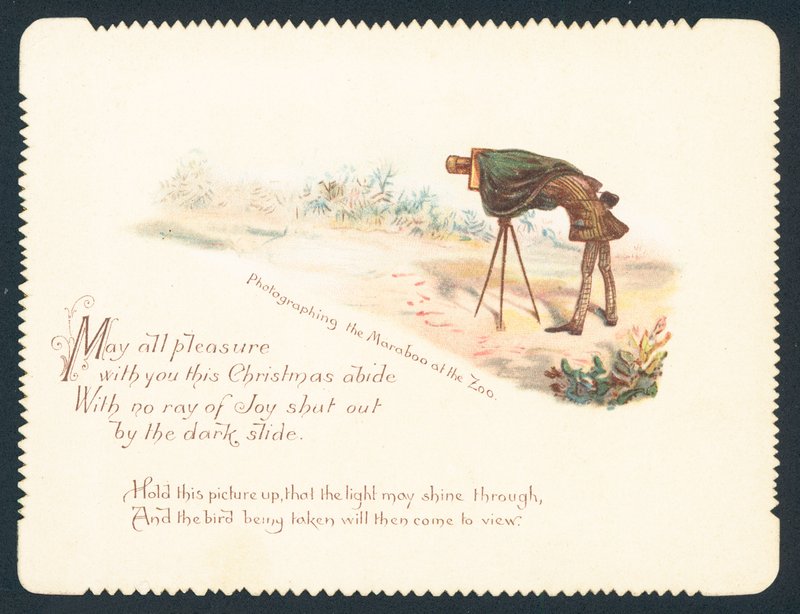 Photographing the Maraboo at the Zoo.
May all pleasure
with you this Christmas abide
With no ray of Joy shut out
by the dark slide.
Hold this picture up, that the light may shine through,
And the bird being taken will then come to view.